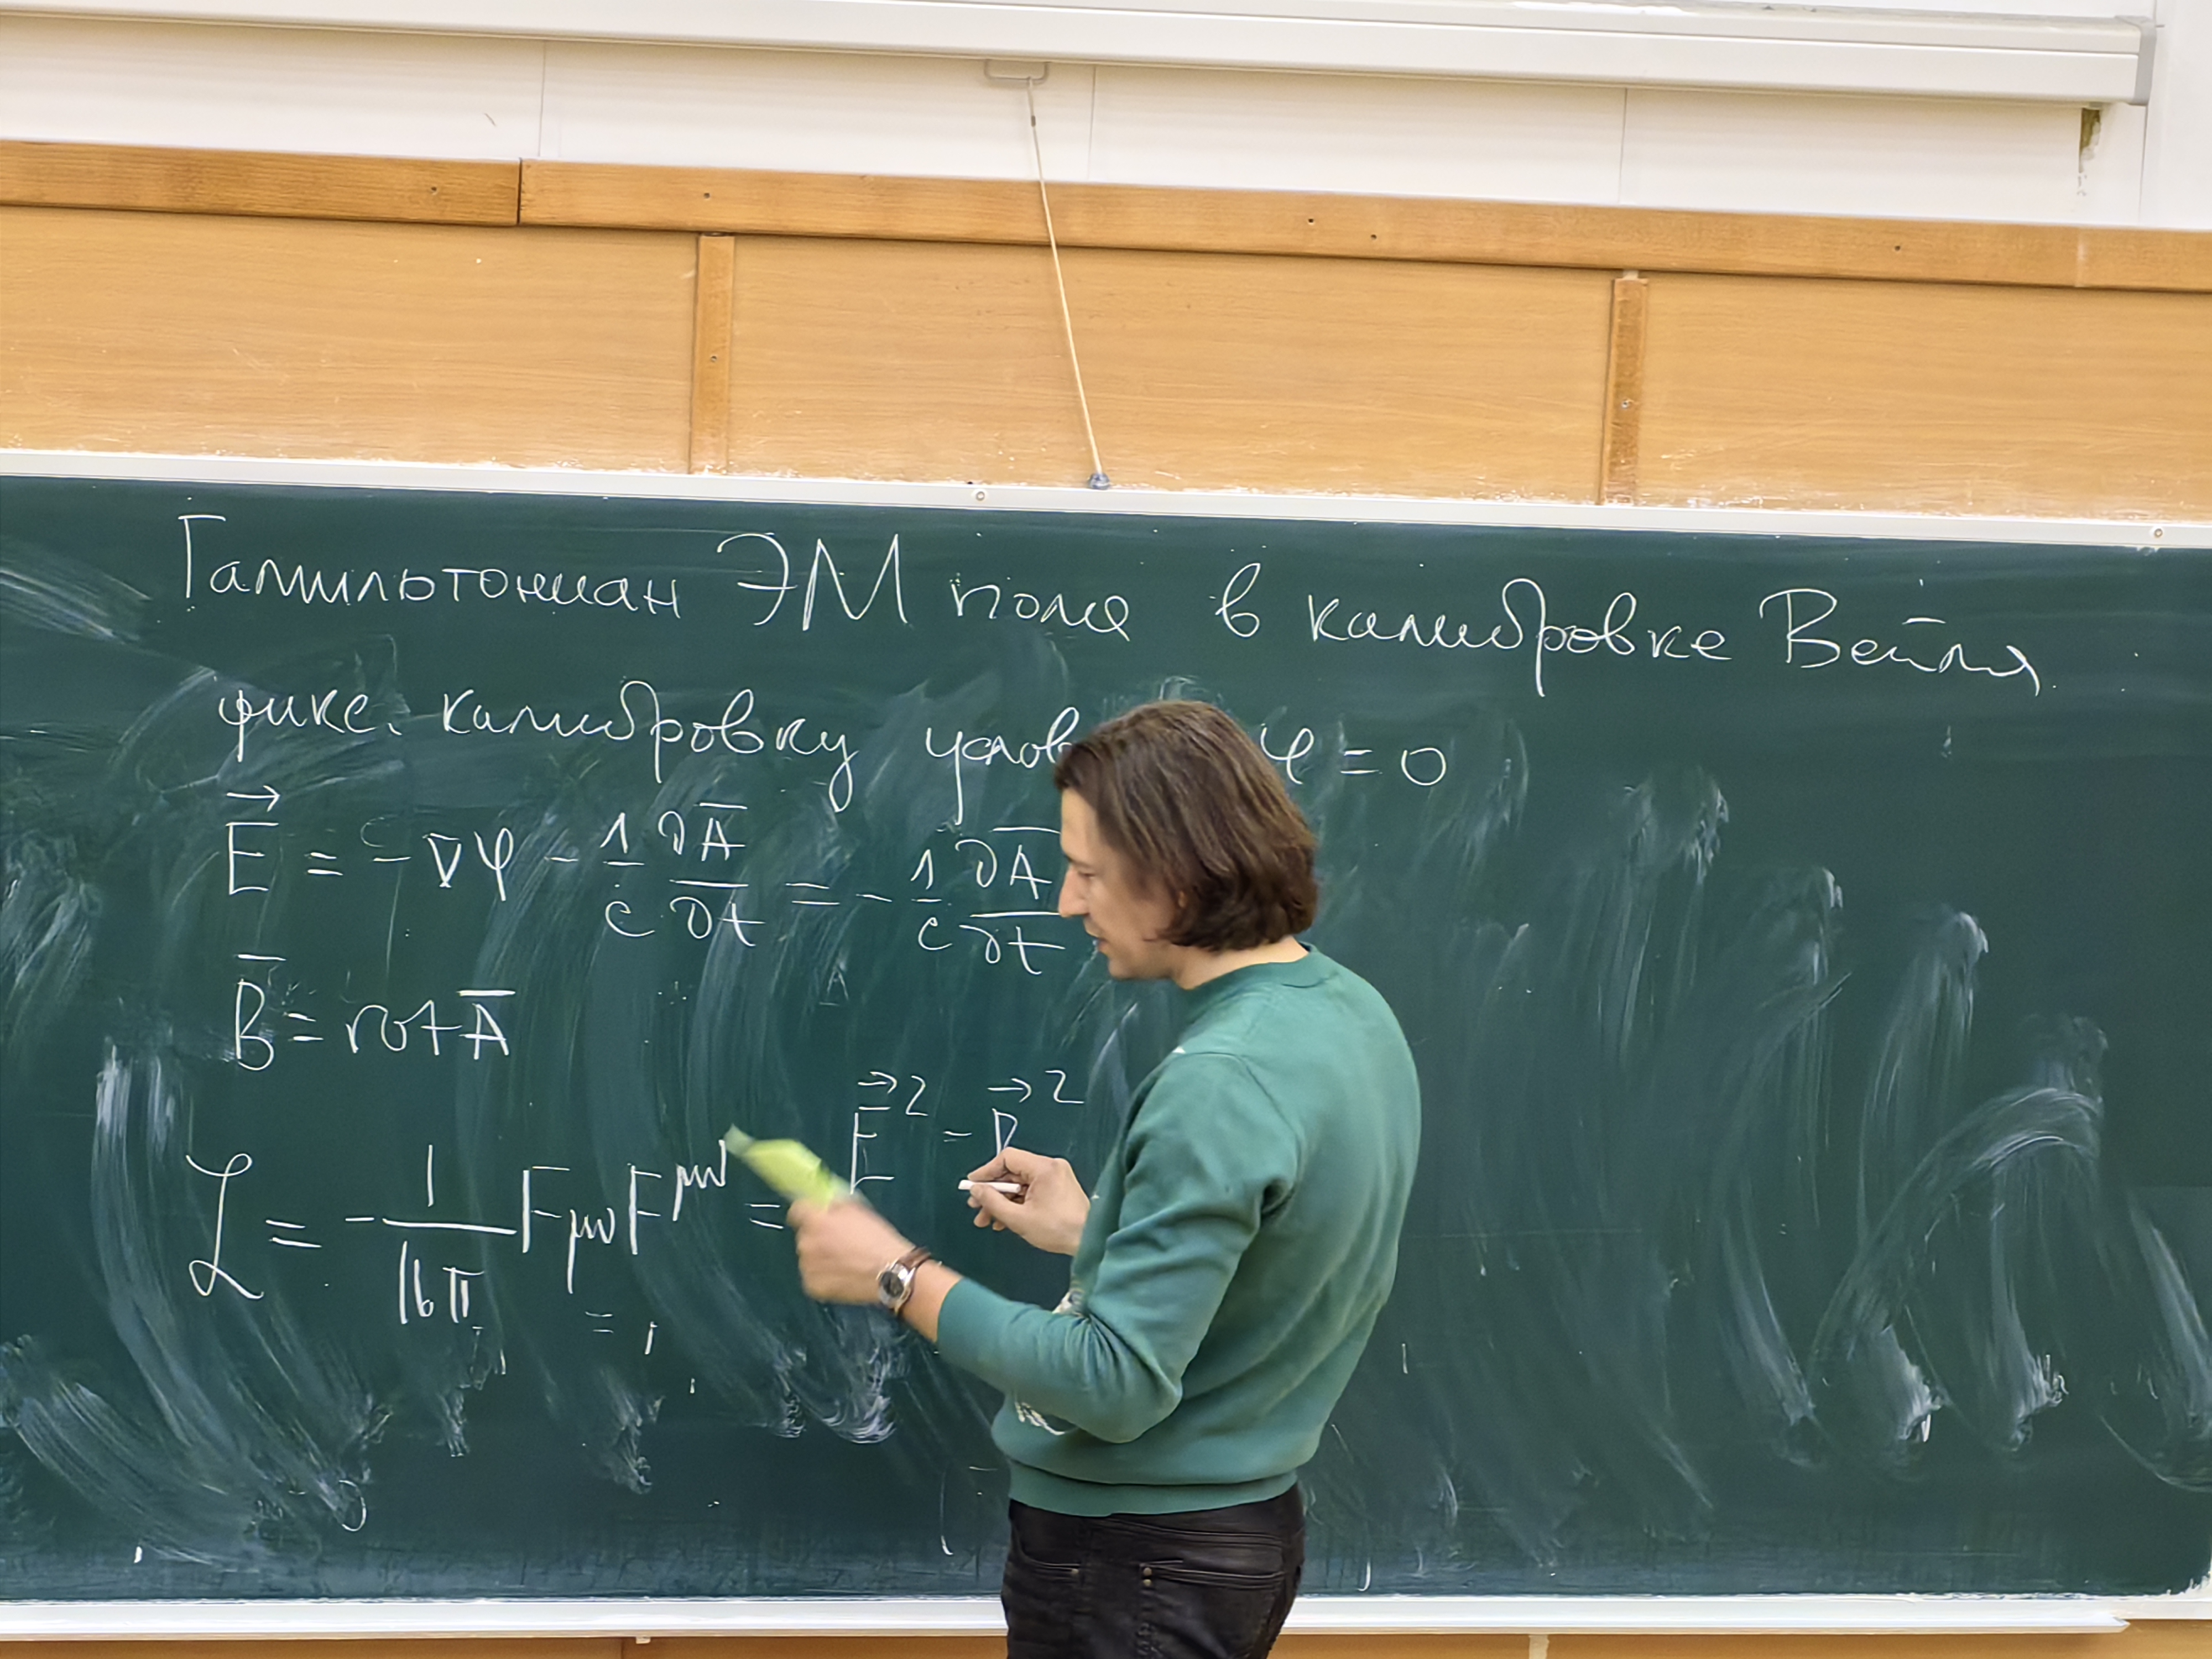 Гамильтониан ЭМ поля в калибровке Вейля
фикс. калибровку φ = 0
E⃗ = -∇φ - 1/c ∂A̅/∂t = - 1/c ∂A̅/∂t
B̅ = rot A̅
ℒ = - 1/16π F_μν F^μν = E⃗² - B⃗²